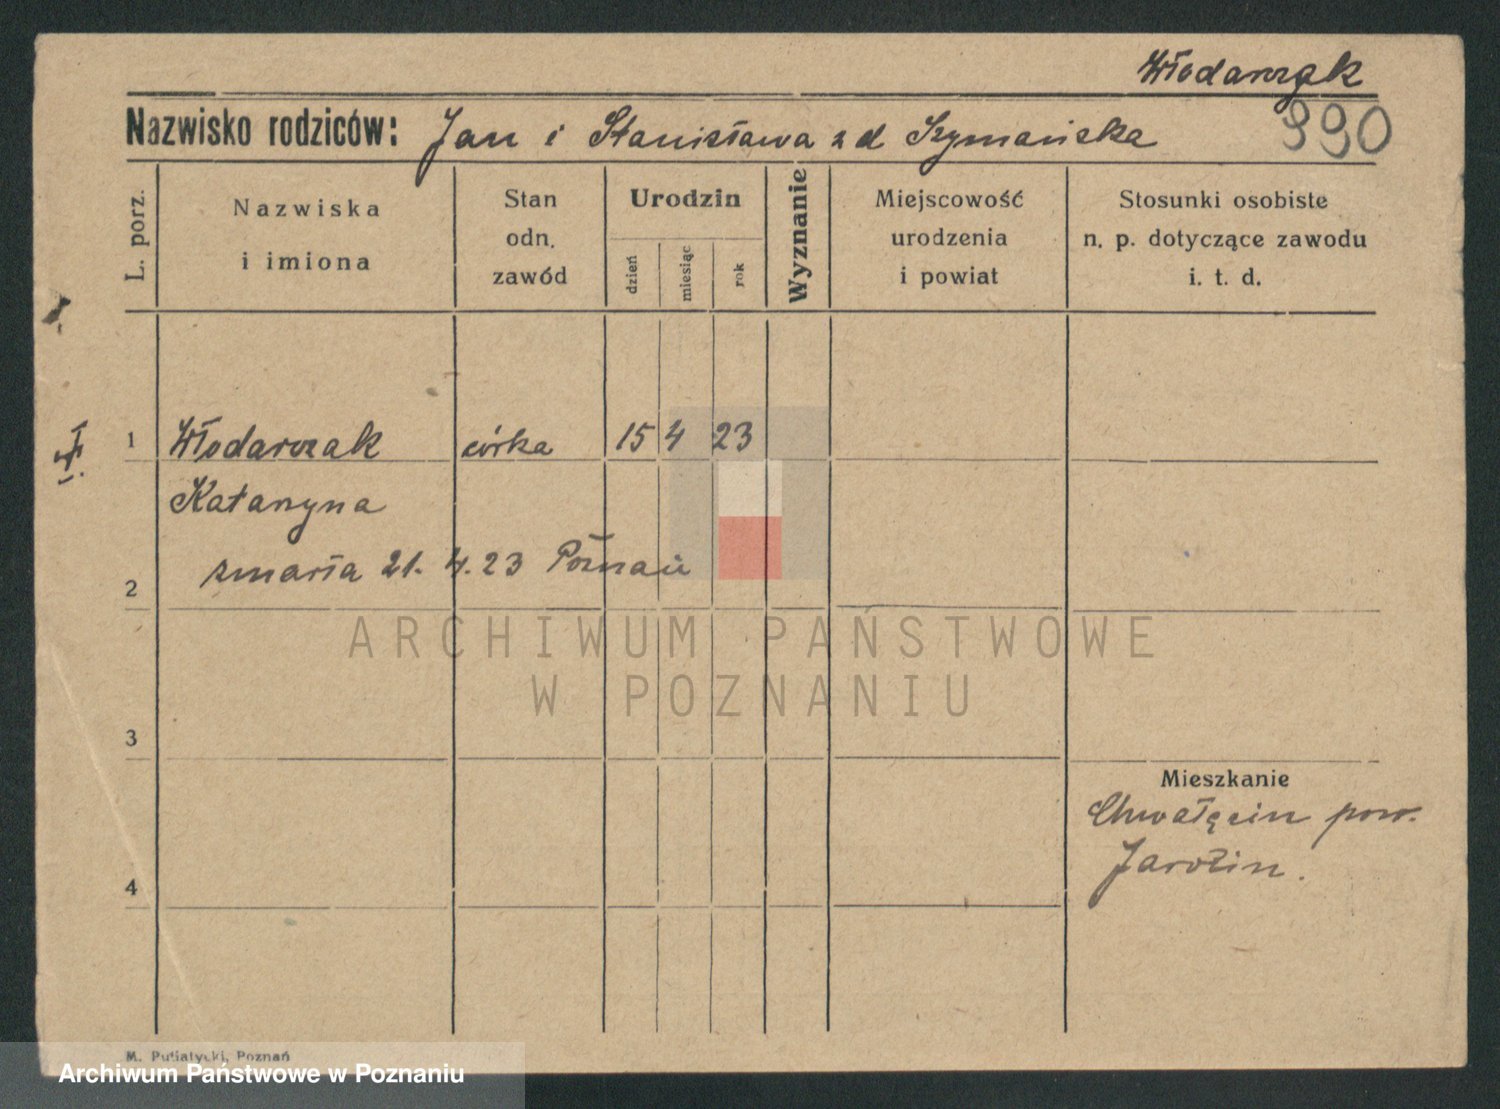 Włodarczak
Nazwisko rodziców: Jan i Stanisława z d Szymańska
990
L. porz.
Nazwiska
i imiona
Stan
odn.
zawód
Urodzin
dzień
miesiąc
rok
Wyznanie
Miejscowość
urodzenia
i powiat
Stosunki osobiste
n. p. dotyczące zawodu
i. t. d.
1 Włodarczak córka 15 4 23
Katarzyna
zmarła 21. 4. 23 Poznań
2
ARCHIWUM PAŃSTWOWE
W POZNANIU
3
Mieszkanie
Chwałęcin pow.
Jarocin.
4
M. Putiatycki, Poznań
Archiwum Państwowe w Poznaniu